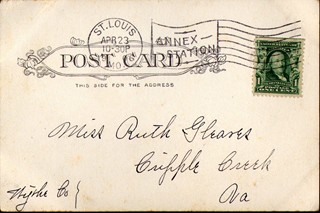 ST. LOUIS
APR 23
10-30P
MO.
ANNEX
STATION
POST CARD
THIS SIDE FOR THE ADDRESS
Miss Ruth Gleaves
Cripple Creek
Wythe Co {
Va